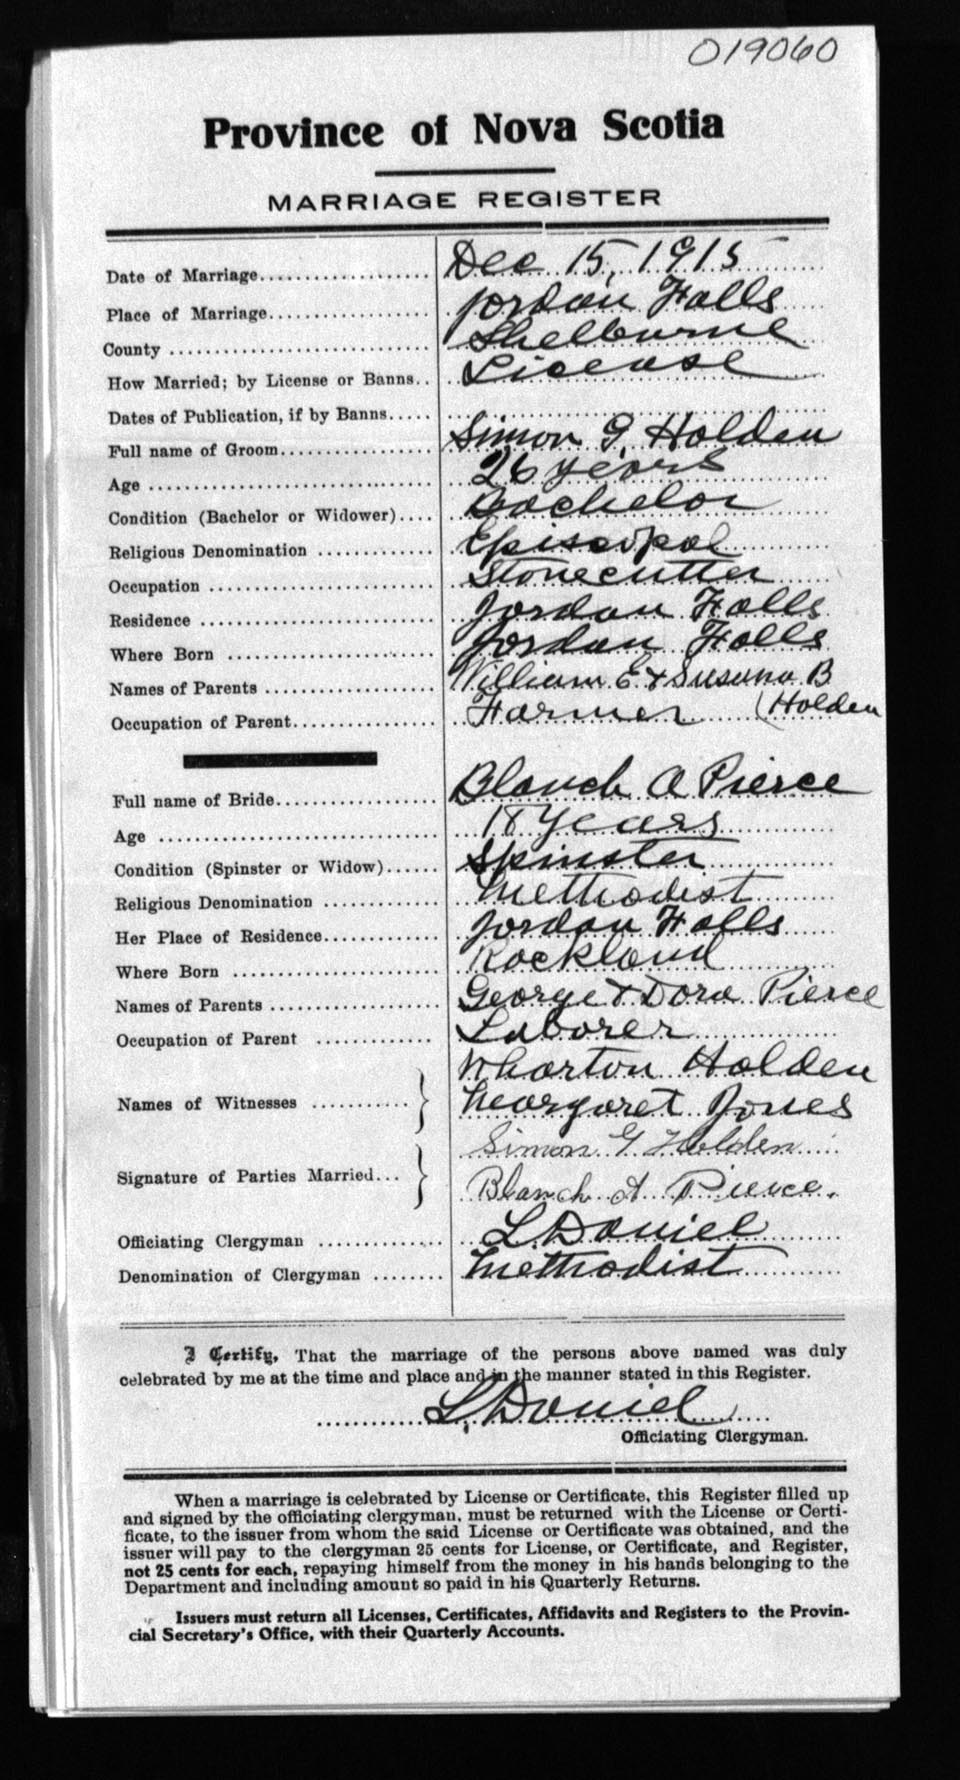 019060
Province of Nova Scotia
MARRIAGE REGISTER
Date of Marriage Dec 15, 1915
Place of Marriage Jordan Falls
County Shelburne
How Married; by License or Banns License
Dates of Publication, if by Banns
Full name of Groom Simon G Holden
Age 26 years
Condition (Bachelor or Widower) Bachelor
Religious Denomination Episcopal
Occupation Stonecutter
Residence Jordan Falls
Where Born Jordan Falls
Names of Parents William E & Susana B
Occupation of Parent Farmer (Holden
Full name of Bride Blanch A Pierce
Age 18 years
Condition (Spinster or Widow) Spinster
Religious Denomination Methodist
Her Place of Residence Jordan Falls
Where Born Rockland
Names of Parents George & Dora Pierce
Occupation of Parent Laborer
Wharton Holden
Names of Witnesses Margaret Jones
Simon G Holden
Signature of Parties Married Blanch A Pierce.
Officiating Clergyman L. Daniel
Denomination of Clergyman Methodist
I Certify, That the marriage of the persons above named was duly
celebrated by me at the time and place and in the manner stated in this Register.
L. Daniel
Officiating Clergyman.
When a marriage is celebrated by License or Certificate, this Register filled up
and signed by the officiating clergyman, must be returned with the License or Certi-
ficate, to the issuer from whom the said License or Certificate was obtained, and the
issuer will pay to the clergyman 25 cents for License, or Certificate, and Register,
not 25 cents for each, repaying himself from the money in his hands belonging to the
Department and including amount so paid in his Quarterly Returns.
Issuers must return all Licenses, Certificates, Affidavits and Registers to the Provin-
cial Secretary's Office, with their Quarterly Accounts.